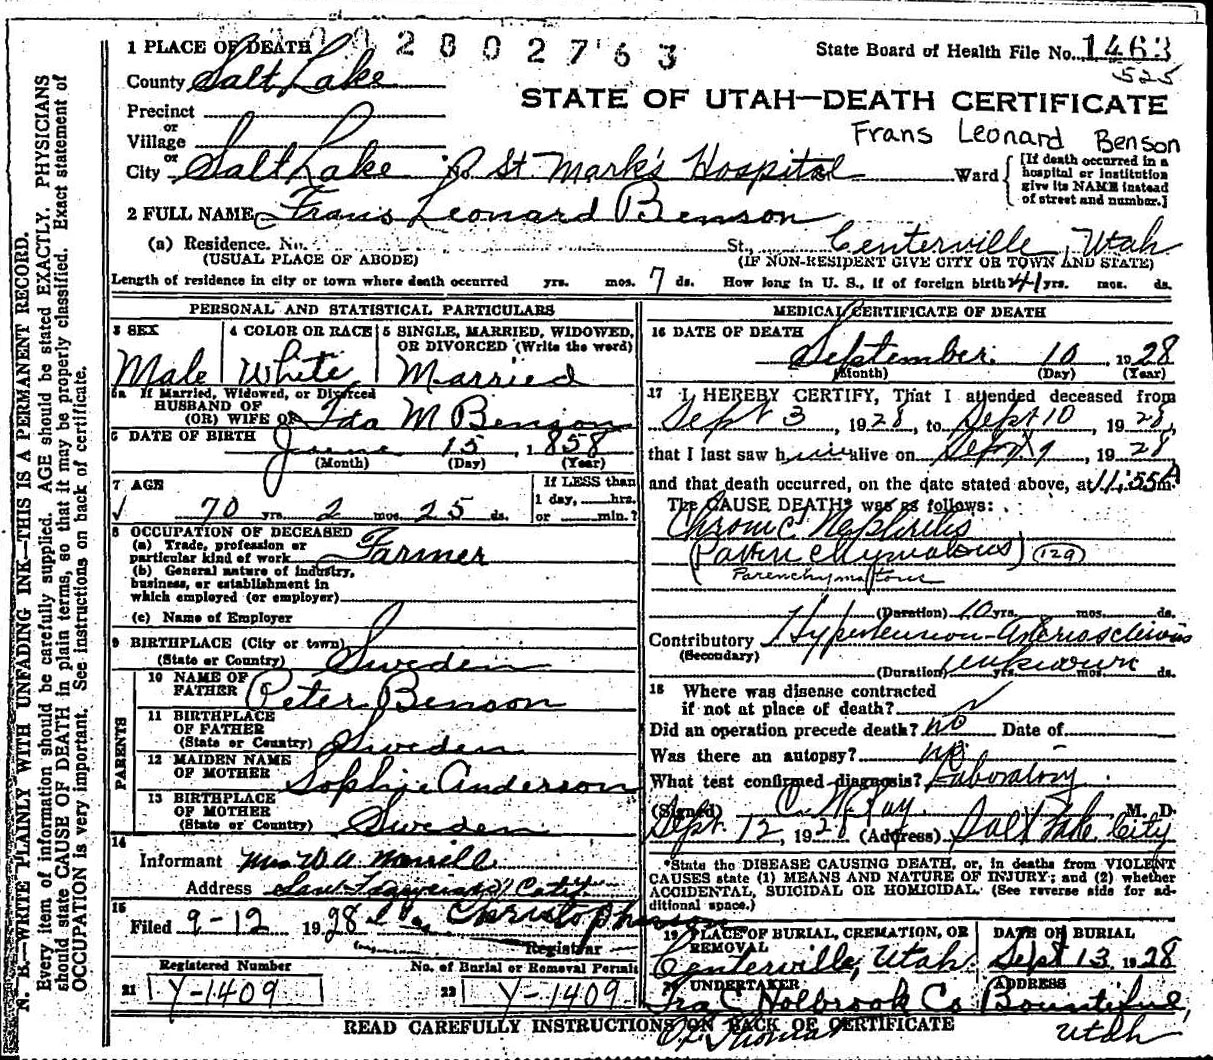 N. B.—WRITE PLAINLY WITH UNFADING INK—THIS IS A PERMANENT RECORD.
Every item of information should be carefully supplied. AGE should be stated EXACTLY. PHYSICIANS
should state CAUSE OF DEATH in plain terms, so that it may be properly classified. Exact statement of
OCCUPATION is very important. See instructions on back of certificate.
2802763
State Board of Health File No. 1463
525
1 PLACE OF DEATH
County Salt Lake
STATE OF UTAH—DEATH CERTIFICATE
Precinct
or
Village
Frans Leonard Benson
or
City Salt Lake St Mark's Hospital Ward
[If death occurred in a
hospital or institution
give its NAME instead
of street and number.]
2 FULL NAME Frans Leonard Benson
(a) Residence. No. St., Centerville, Utah
(USUAL PLACE OF ABODE) (IF NON-RESIDENT GIVE CITY OR TOWN AND STATE)
Length of residence in city or town where death occurred yrs. mos. 7 ds. How long in U. S., if of foreign birth 41 yrs. mos. ds.
PERSONAL AND STATISTICAL PARTICULARS
3 SEX
Male
4 COLOR OR RACE
White
5 SINGLE, MARRIED, WIDOWED,
OR DIVORCED (Write the word)
Married
5a If Married, Widowed, or Divorced
HUSBAND OF
(OR) WIFE OF Ida M Benson
6 DATE OF BIRTH
June 15, 1858
(Month) (Day) (Year)
7 AGE
70 yrs. 2 mos. 25 ds.
If LESS than
1 day, hrs.
or min.?
8 OCCUPATION OF DECEASED
(a) Trade, profession or
particular kind of work Farmer
(b) General nature of industry,
business, or establishment in
which employed (or employer)
(c) Name of Employer
9 BIRTHPLACE (City or town)
(State or Country) Sweden
PARENTS
10 NAME OF
FATHER Peter Benson
11 BIRTHPLACE
OF FATHER
(State or Country) Sweden
12 MAIDEN NAME
OF MOTHER Sophie Anderson
13 BIRTHPLACE
OF MOTHER
(State or Country) Sweden
14
Informant Mrs W A
Address City
15
Filed 9-12 1928 Christopherson
Registrar
Registered Number
21 Y-1409
No. of Burial or Removal Permit
22 Y-1409
MEDICAL CERTIFICATE OF DEATH
16 DATE OF DEATH
September 10, 1928
(Month) (Day) (Year)
17 I HEREBY CERTIFY, That I attended deceased from
Sept 3, 1928, to Sept 10, 1928,
that I last saw him alive on Sept 9, 1928
and that death occurred, on the date stated above, at 11:55 A m.
The CAUSE DEATH* was as follows:
Chronic Nephritis
(129)
Parenchymatous
(Duration) 10 yrs. mos. ds.
Contributory Hypertension-Arteriosclerosis
(Secondary)
(Duration) unknown yrs. mos. ds.
18 Where was disease contracted
if not at place of death?
Did an operation precede death? No Date of
Was there an autopsy? no
What test confirmed diagnosis? Laboratory
(Signed) M. D.
Sept. 12, 1928 (Address) Salt Lake City
*State the DISEASE CAUSING DEATH, or, in deaths from VIOLENT
CAUSES state (1) MEANS AND NATURE OF INJURY; and (2) whether
ACCIDENTAL, SUICIDAL OR HOMICIDAL. (See reverse side for ad-
ditional space.)
19 PLACE OF BURIAL, CREMATION, OR
REMOVAL
Centerville, Utah
DATE OF BURIAL
Sept 13 1928
20 UNDERTAKER
Ira C Holbrook Co
ADDRESS
Bountiful,
Utah
READ CAREFULLY INSTRUCTIONS ON BACK OF CERTIFICATE
Thomas